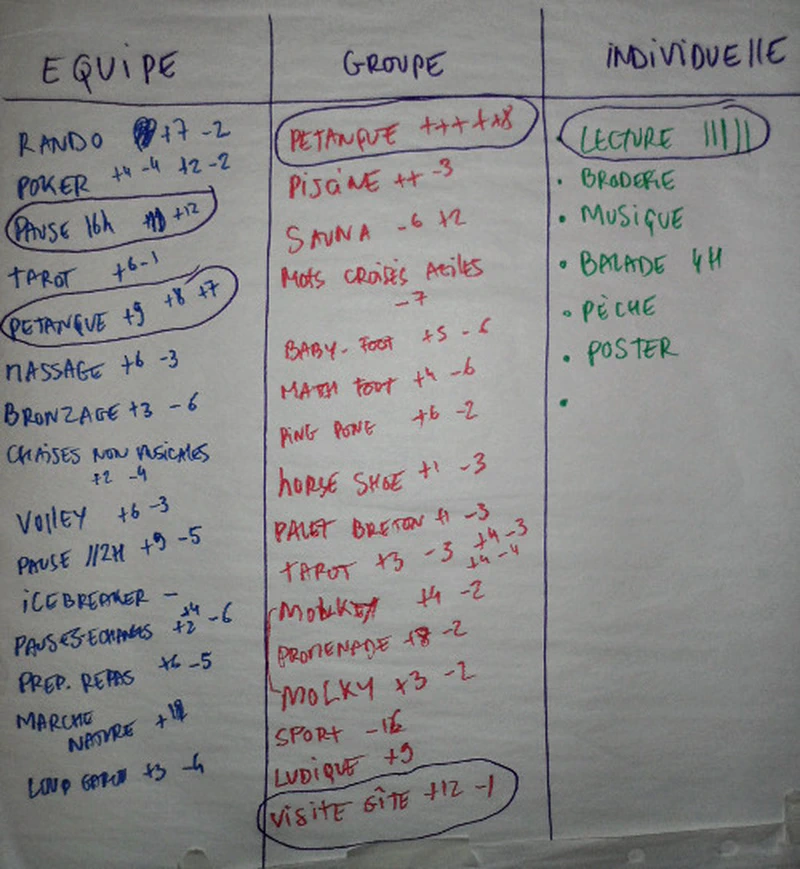 EQUIPE
RANDO +7 -2
POKER +4 -4 +2 -2
PAUSE 16h +12
TAROT +6 -1
PETANQUE +9 +8 +7
MASSAGE +6 -3
BRONZAGE +3 -6
CHAISES NON MUSICALES
+2 -4
VOLLEY +6 -3
PAUSE 1/2H +9 -5
ICEBREAKER -
+4
PAUSES-ECHANGES +2 -6
PREP. REPAS +6 -5
MARCHE
NATURE
LOUP GAROU +3 -4
GROUPE
PETANQUE +++ ++8
PISCINE ++ -3
SAUNA -6 +2
MOTS CROISÉS
-7
BABY-FOOT +5 -6
MATH FOOT +4 -6
PING PONG +6 -2
HORSE SHOE +1 -3
PALET BRETON +1 -3
TAROT +3 -3 +4 -3
+4 -4
+4 -2
PROMENADE +8 -2
MOLKY +3 -2
SPORT -16
LUDIQUE +9
VISITE GÎTE +12 -1
INDIVIDUELLE
• LECTURE |||||
• BRODERIE
• MUSIQUE
• BALADE 4H
• PÊCHE
• POSTER
•